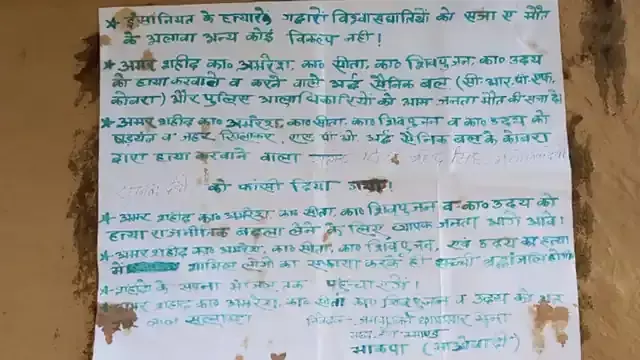 ★ इंसानियत के हत्यारे गद्दारों विश्वासघातियों को सजा ए मौत
के अलावा अन्य कोई विकल्प नहीं!
★ अमर शहीद का० अमरेश, का० सीता, का० शिवपुजन, का० उदय
को हत्या करवाने व करने वाले अर्द्ध सैनिक बल (सी.आर.पी.एफ.
कोबरा) और पुलिस आलाधिकारियों को आम जनता मौत की सजा दे।
★ अमर शहीद का० अमरेश, का० सीता, का० शिवपुजन व का० उदय को
षड्यंत्र व जहर खिलाकर, एस पी ओ अर्द्ध सैनिक बल के कोबरा
द्वारा हत्या करवाने वाला
को फांसी दिया गया!
★ अमर शहीद का० अमरेश, का० सीता, का० शिवपुजन व का० उदय को
हत्या राजनीतिक बदला लेने के लिए व्यापक जनता आगे आवे!
★ अमर शहीद का० अमरेश, का० सीता, का० शिवपुजन, एवं उदय का हत्या
में शामिल लोगों का सफाया करना ही सच्ची श्रद्धांजलि होगी
★ शहीदों के सपना मंजिल तक पहुंचाएंगे!
अमर शहीद का० अमरेश, का० सीता का० शिवपुजन व उदय को
लाल सलाम!
निवेदक- जनमुक्ति छापामार सेना
भाकपा (माओवादी)